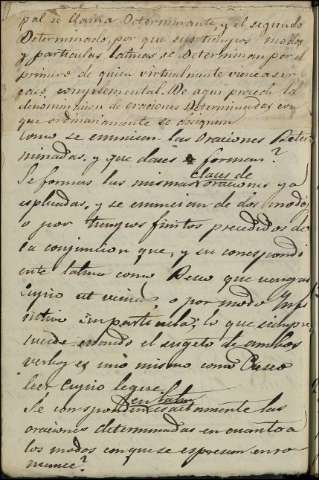 pal se llama Determinante, y el segundo
Determinado, por que sus tiempos modos
y particulas latinas se determinan por el
primero de quien virtualmente viene a ser
complemental. De aqui procede la
denominacion de oraciones Determinadas con
que ordinariamente se designan
como se enuncian las Oraciones Deter
minadas, y que claces forman?
Se forman las mismas claces de oraciones ya
esplicadas, y se enuncian de dos modos
o por tiempos finitos precedidos de
la conjuncion que, y su correspondi
ente latina como Deseo que vengas
Cupio ut venias, o por modo Infi
nitivo sin particula; lo que siempre
sucede cuando el sugeto de ambos
verbos es uno mismo como Deseo
leer Cupio legere.
Se corresponden en latin esactamente las
oraciones determinadas en cuanto a
los modos con que se espresan en ro
mance?